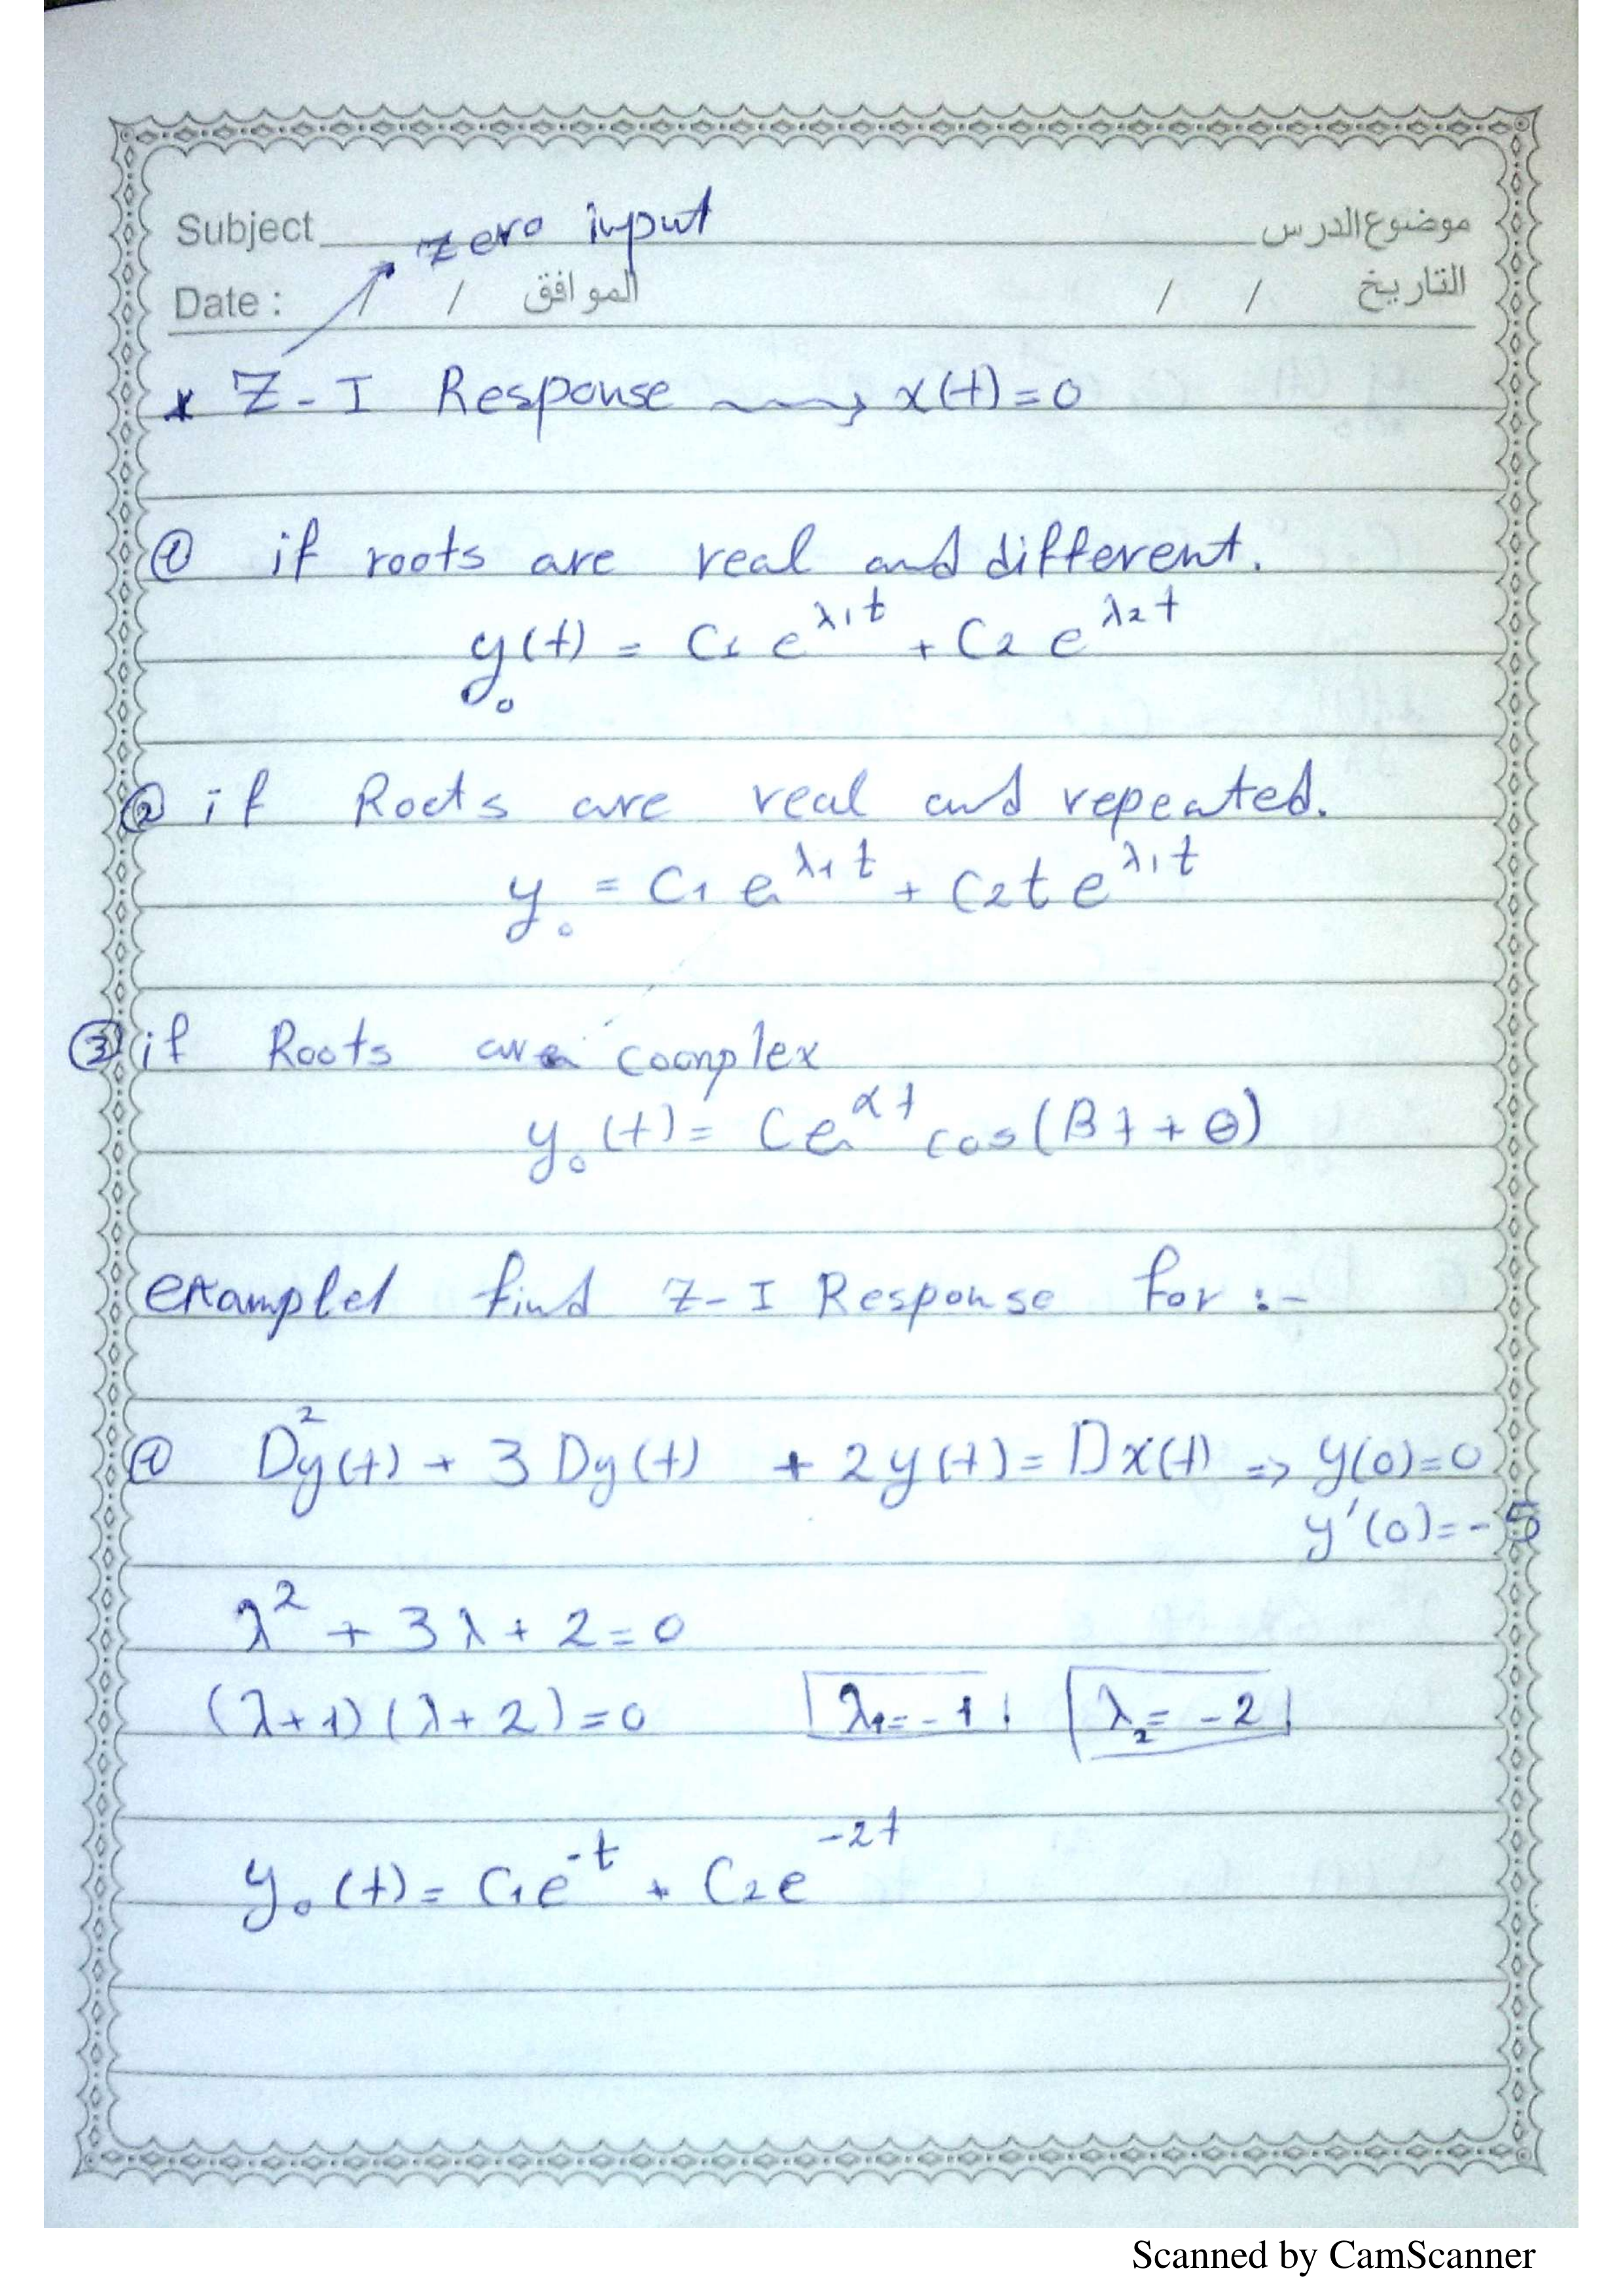 zero input
Subject موضوع الدرس
Date : / / الموافق / / التاريخ
* Z-I Response → x(t)=0
① if roots are real and different.
y₀(t) = C1 e^λ1t + C2 e^λ2t
② if Roots are real and repeated.
y₀ = C1 e^λ1t + C2 t e^λ1t
③ if Roots are coomplex
y₀(t) = C e^αt cos(βt + θ)
example1 find Z-I Response for :-
① D²y(t) + 3 Dy(t) + 2y(t) = Dx(t) ⇒ y(0)=0
y'(0)=-5
λ² + 3λ + 2 = 0
(λ+1)(λ+2)=0 λ1=-1 λ2=-2
y₀(t) = C1e^-t + C2e^-2t
Scanned by CamScanner